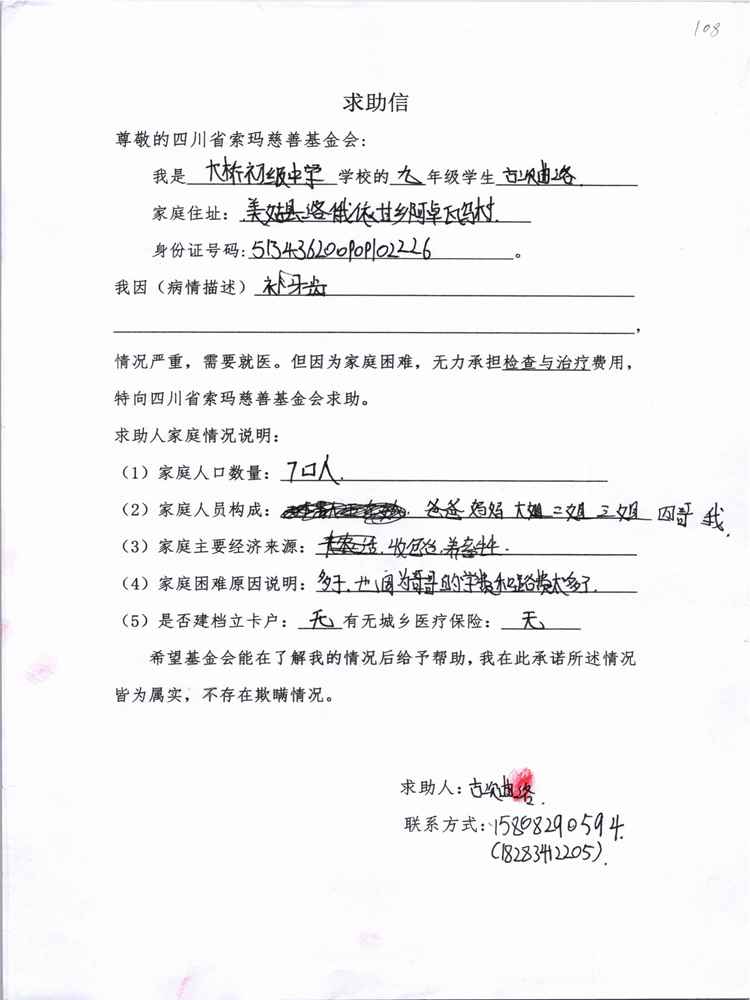 108
求助信
尊敬的四川省索玛慈善基金会:
我是 大桥初级中学 学校的 九 年级学生 古次曲洛.
家庭住址: 美姑县洛俄依甘乡阿卓瓦乌村.
身份证号码: 513436200909102226 。
我因（病情描述） 补牙齿
，
情况严重，需要就医。但因为家庭困难，无力承担检查与治疗费用，
特向四川省索玛慈善基金会求助。
求助人家庭情况说明:
（1）家庭人口数量: 7口人.
（2）家庭人员构成: 爸爸 妈妈 大姐 二姐 三姐 四哥 我.
（3）家庭主要经济来源: 养杂牛.
（4）家庭困难原因说明: 哥哥的学费和路费太多了.
（5）是否建档立卡户: 无 有无城乡医疗保险: 无
希望基金会能在了解我的情况后给予帮助，我在此承诺所述情况
皆为属实，不存在欺瞒情况。
求助人: 古次曲洛.
联系方式: 15808290594.
(18283412205).